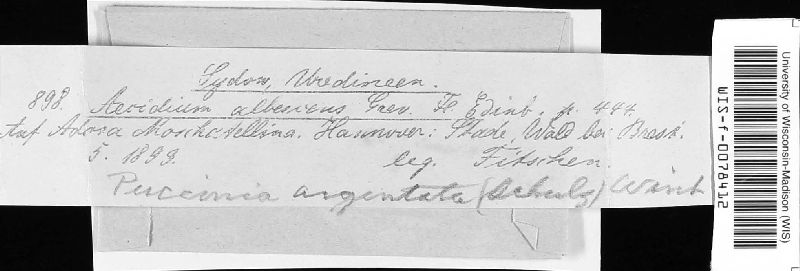 Sydow, Uredineen.
898. Aecidium albescens Grev. Fl. Edinb. p. 444.
Auf Adoxa Moschatellina. Hannover: Stade, Wald bei
5. 1899. leg. Fitschen.
Puccinia argentata (Schulz) Wint
University of Wisconsin-Madison (WIS)
WIS-f-0078412